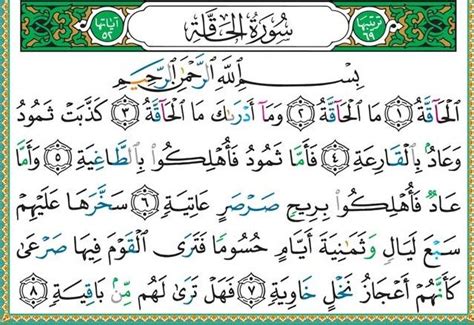 ترتيبها ٦٩ سُورَةُ الحَاقَّةِ آياتها ٥٢
بِسْمِ ٱللَّهِ ٱلرَّحْمَٰنِ ٱلرَّحِيمِ
ٱلْحَآقَّةُ ١ مَا ٱلْحَآقَّةُ ٢ وَمَآ أَدْرَىٰكَ مَا ٱلْحَآقَّةُ ٣ كَذَّبَتْ ثَمُودُ
وَعَادٌۢ بِٱلْقَارِعَةِ ٤ فَأَمَّا ثَمُودُ فَأُهْلِكُوا۟ بِٱلطَّاغِيَةِ ٥ وَأَمَّا
عَادٌ فَأُهْلِكُوا۟ بِرِيحٍ صَرْصَرٍ عَاتِيَةٍ ٦ سَخَّرَهَا عَلَيْهِمْ
سَبْعَ لَيَالٍ وَثَمَٰنِيَةَ أَيَّامٍ حُسُومًا فَتَرَى ٱلْقَوْمَ فِيهَا صَرْعَىٰ
كَأَنَّهُمْ أَعْجَازُ نَخْلٍ خَاوِيَةٍ ٧ فَهَلْ تَرَىٰ لَهُم مِّنۢ بَاقِيَةٍ ٨